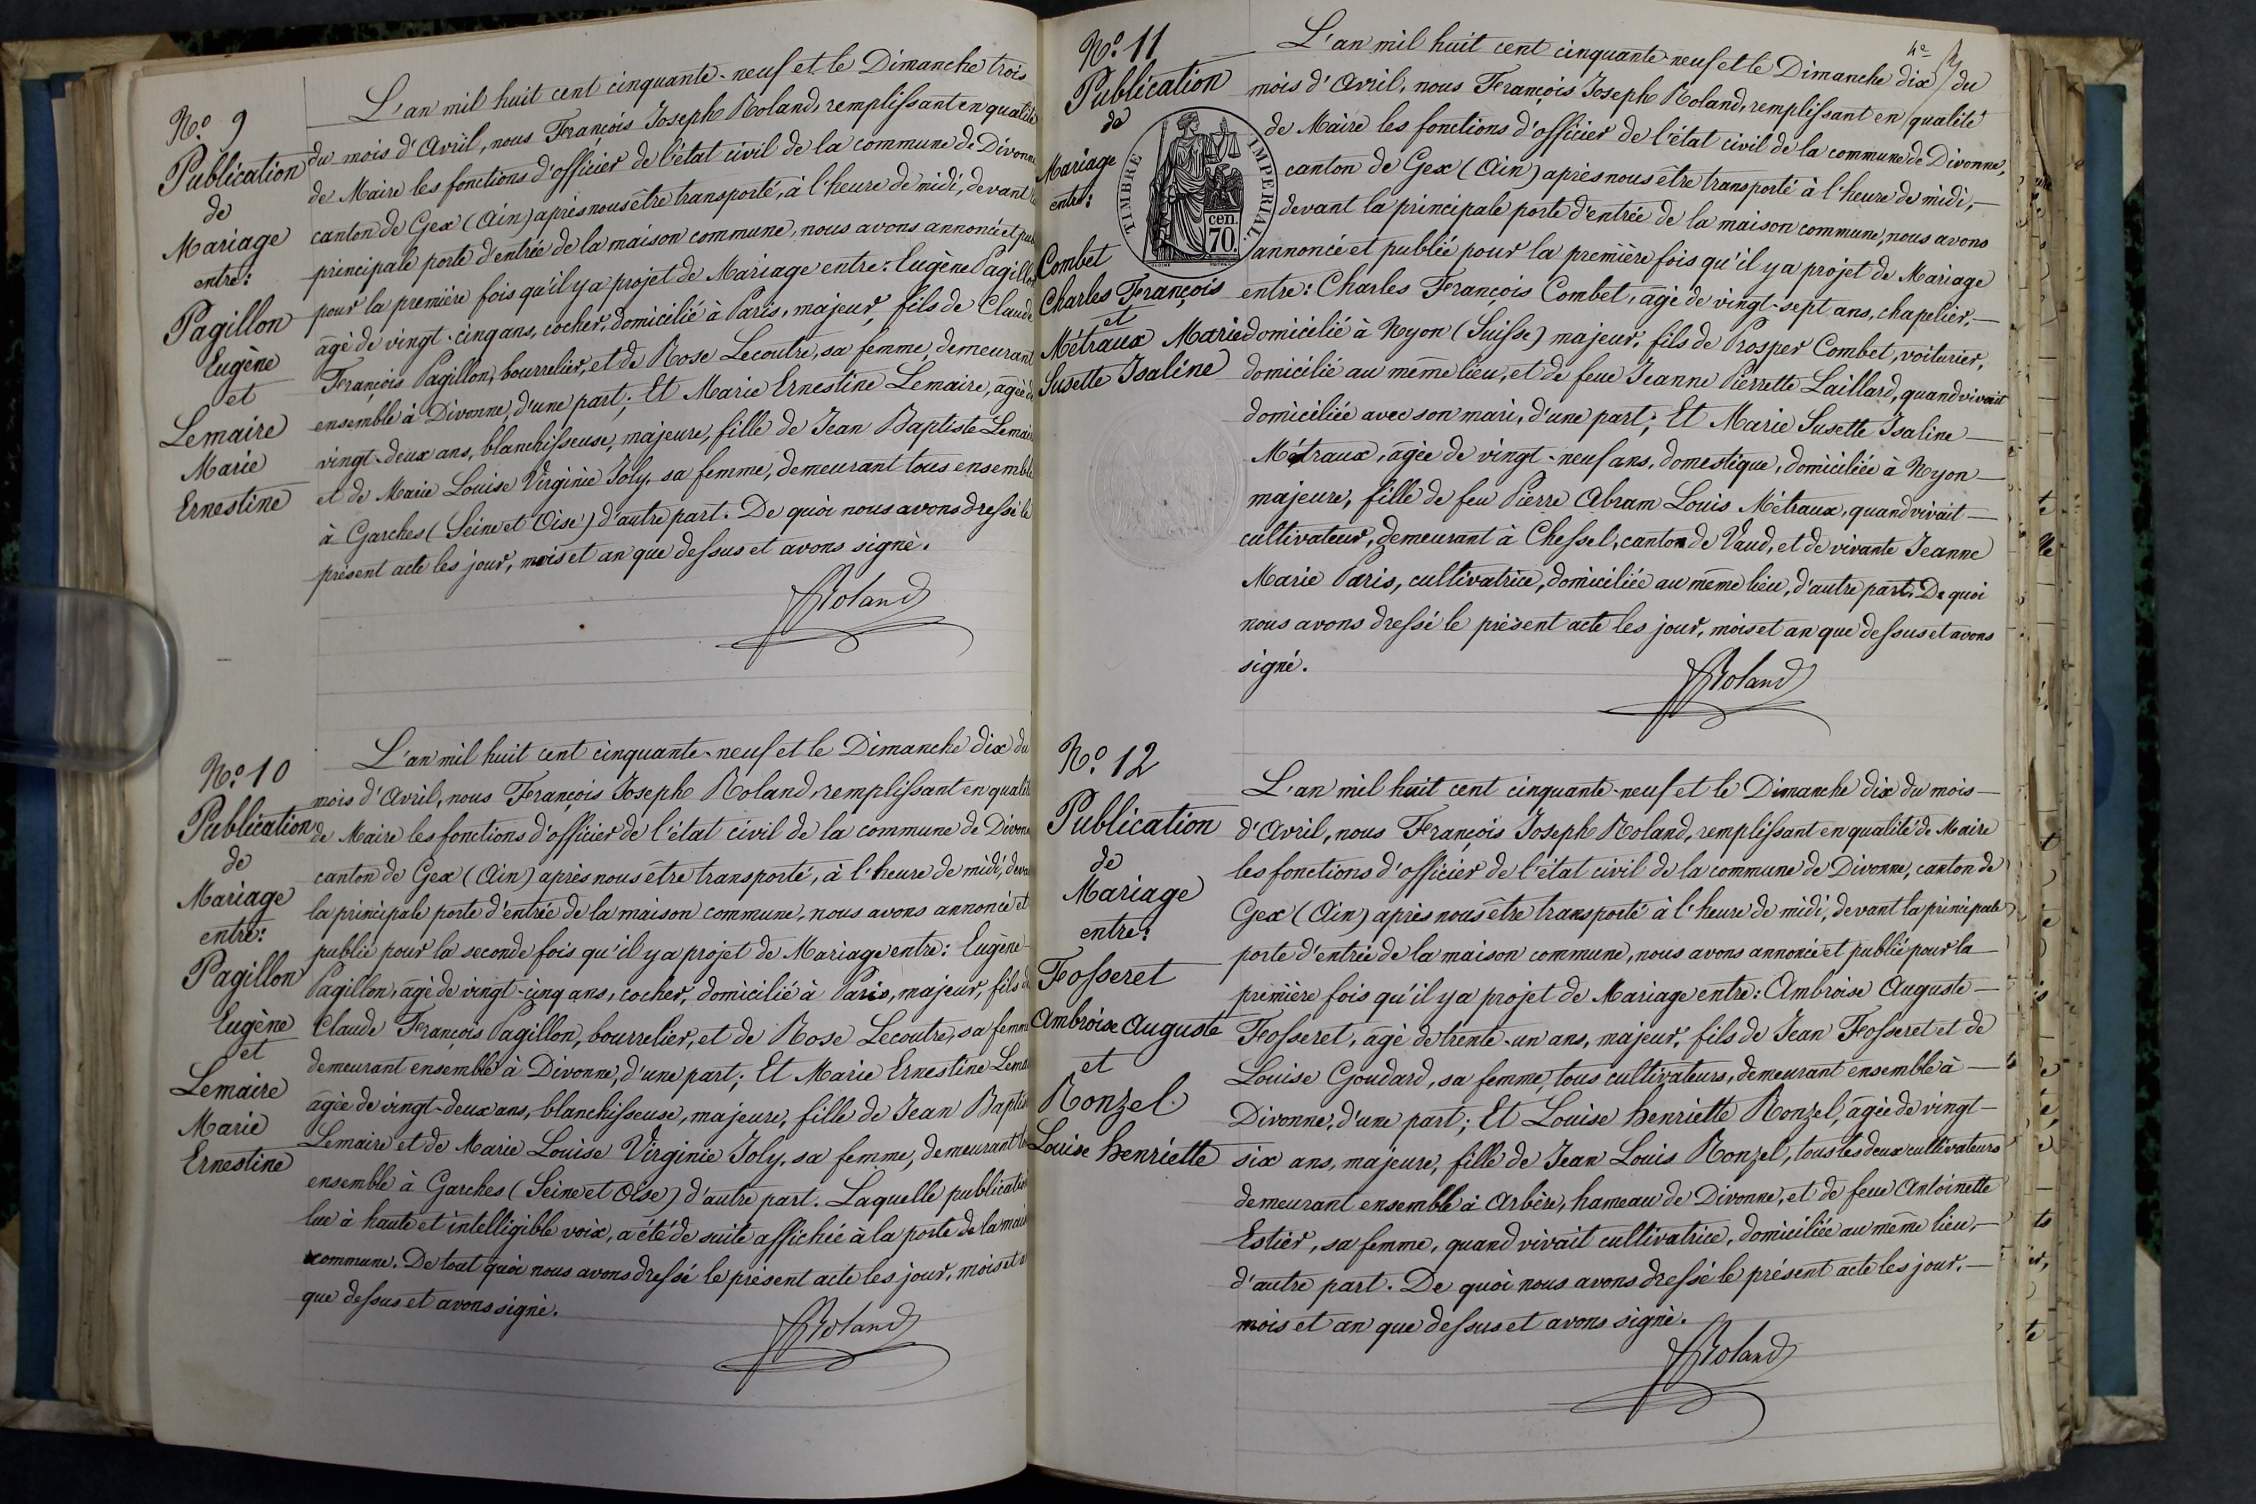 N.o 9
Publication
de
Mariage
entre:
Pagillon
Eugène
et
Lemaire
Marie
Ernestine
L'an mil huit cent cinquante-neuf et le Dimanche trois
du mois d'Avril, nous François Joseph Roland, remplissant en qualité
de Maire les fonctions d'officier de l'état civil de la commune de Divonne
canton de Gex (Ain) après nous être transporté, à l'heure de midi, devant
principale porte d'entrée de la maison commune, nous avons annoncé et
pour la première fois qu'il y a projet de Mariage entre: Eugène Pagillon
âgé de vingt-cinq ans, cocher, domicilié à Paris, majeur, fils de Claude
François Pagillon, bourrelier, et de Rose Lecoutre, sa femme, demeurant
ensemble à Divonne, d'une part; Et Marie Ernestine Lemaire, âgée de
vingt-deux ans, blanchisseuse, majeure, fille de Jean Baptiste Lemaire
et de Marie Louise Virginie Joly, sa femme, demeurant tous ensemble
à Garches (Seine et Oise) d'autre part. De quoi nous avons dressé le
présent acte les jour, mois et an que dessus et avons signé.
Roland
N.o 10
Publication
de
Mariage
entre:
Pagillon
Eugène
et
Lemaire
Marie
Ernestine
L'an mil huit cent cinquante-neuf et le Dimanche dix du
mois d'Avril, nous François Joseph Roland, remplissant en qualité
de Maire les fonctions d'officier de l'état civil de la commune de Divonne
canton de Gex (Ain) après nous être transporté, à l'heure de midi,
la principale porte d'entrée de la maison commune, nous avons annoncé et
publié pour la seconde fois qu'il y a projet de Mariage entre: Eugène
Pagillon, âgé de vingt-cinq ans, cocher, domicilié à Paris, majeur, fils de
Claude François Pagillon, bourrelier, et de Rose Lecoutre, sa femme
demeurant ensemble à Divonne, d'une part; Et Marie Ernestine
âgée de vingt-deux ans, blanchisseuse, majeure, fille de Jean
Lemaire et de Marie Louise Virginie Joly, sa femme, demeurant
ensemble à Garches (Seine et Oise) d'autre part. Laquelle publication
lue à haute et intelligible voix, a été de suite affichée à la porte de la
commune. De tout quoi nous avons dressé le présent acte les jour, mois et
que dessus et avons signé.
Roland
N.o 11
Publication
de
Mariage
entre:
Combet
Charles François
et
Métraux Marie
Susette Isaline
TIMBRE IMPERIAL
cen.
70.
L'an mil huit cent cinquante-neuf et le Dimanche dix du
mois d'Avril, nous François Joseph Roland, remplissant en qualité
de Maire les fonctions d'officier de l'état civil de la commune de Divonne,
canton de Gex (Ain) après nous être transporté à l'heure de midi,
devant la principale porte d'entrée de la maison commune, nous avons
annoncé et publié pour la première fois qu'il y a projet de Mariage
entre: Charles François Combet, âgé de vingt-sept ans, chapelier,
domicilié à Nyon (Suisse) majeur, fils de Prosper Combet, voiturier,
domicilié au même lieu, et de feue Jeanne Pierrette Laillard, quand vivait
domiciliée avec son mari, d'une part; Et Marie Susette Isaline
Métraux, âgée de vingt-neuf ans, domestique, domiciliée à Nyon
majeure, fille de feu Pierre Abram Louis Métraux, quand vivait
cultivateur, demeurant à Chessel, canton de Vaud, et de vivante Jeanne
Marie Paris, cultivatrice, domiciliée au même lieu, d'autre part. De quoi
nous avons dressé le présent acte les jour, mois et an que dessus et avons
signé.
Roland
N.o 12
Publication
de
Mariage
entre:
Fosseret
Ambroise Auguste
et
Ronzel
Louise henriette
L'an mil huit cent cinquante-neuf et le Dimanche dix du mois
d'Avril, nous François Joseph Roland, remplissant en qualité de Maire
les fonctions d'officier de l'état civil de la commune de Divonne, canton de
Gex (Ain) après nous être transporté à l'heure de midi, devant la principale
porte d'entrée de la maison commune, nous avons annoncé et publié pour la
première fois qu'il y a projet de Mariage entre: Ambroise Auguste
Fosseret, âgé de trente-un ans, majeur, fils de Jean Fosseret et de
Louise Goudard, sa femme, tous cultivateurs, demeurant ensemble à
Divonne, d'une part; Et Louise henriette Ronzel, âgée de vingt-
six ans, majeure, fille de Jean Louis Ronzel, tous les deux cultivateurs
demeurant ensemble à Arbère, hameau de Divonne, et de feue Antoinette
Estier, sa femme, quand vivait cultivatrice, domiciliée au même lieu,
d'autre part. De quoi nous avons dressé le présent acte les jour,
mois et an que dessus et avons signé.
Roland